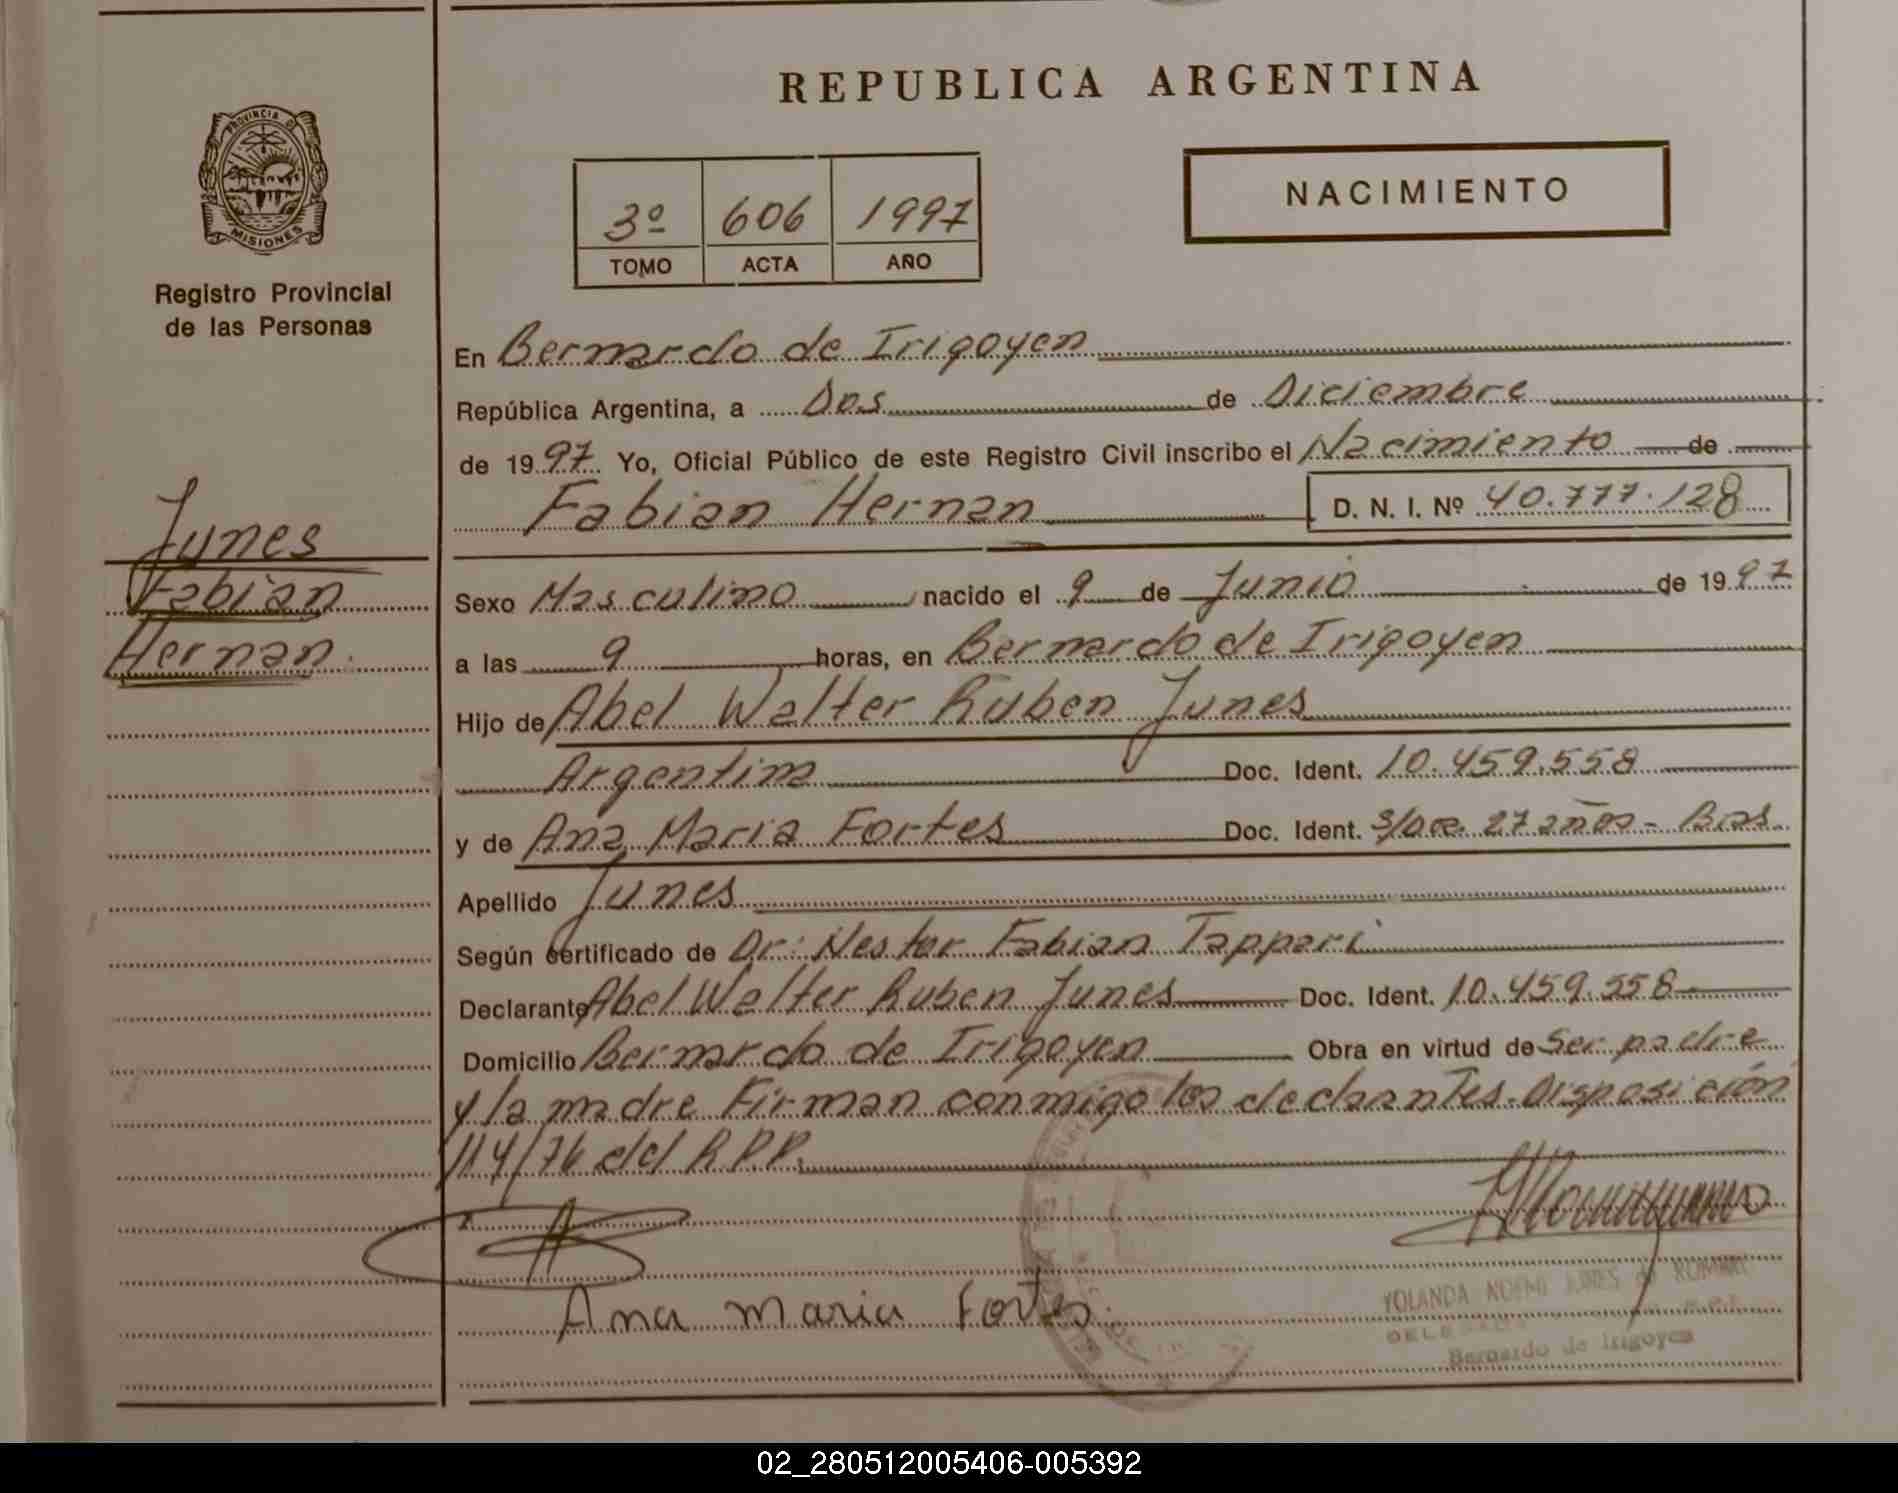 REPUBLICA ARGENTINA
PROVINCIA DE
MISIONES
Registro Provincial
de las Personas
NACIMIENTO
3º 606 1997
TOMO ACTA AÑO
En Bernardo de Irigoyen
República Argentina, a Dos de Diciembre
de 1997 Yo, Oficial Público de este Registro Civil inscribo el Nacimiento de
Fabian Hernan D. N. I. Nº 40.777.128
Junes
Fabian
Hernan.
Sexo Masculino nacido el 9 de Junio de 1997
a las 9 horas, en Bernardo de Irigoyen
Hijo de Abel Walter Ruben Junes
Argentina Doc. Ident. 10.459.558
y de Ana Maria Fortes Doc. Ident. S/Doc. 27 años - Bras.
Apellido Junes
Según certificado de Dr: Nestor Fabian Tappari
Declarante Abel Walter Ruben Junes Doc. Ident. 10.459.558
Domicilio Bernardo de Irigoyen Obra en virtud de Ser padre
y la madre Firman conmigo los declarantes. Disposición
114/76 del R.P.P.
Ana maria Fortes.
YOLANDA NOEMI JUNES de
Bernardo de Irigoyen
02_280512005406-005392